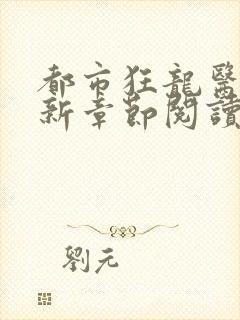 都市狂龍醫
新章節閱讀
劉元